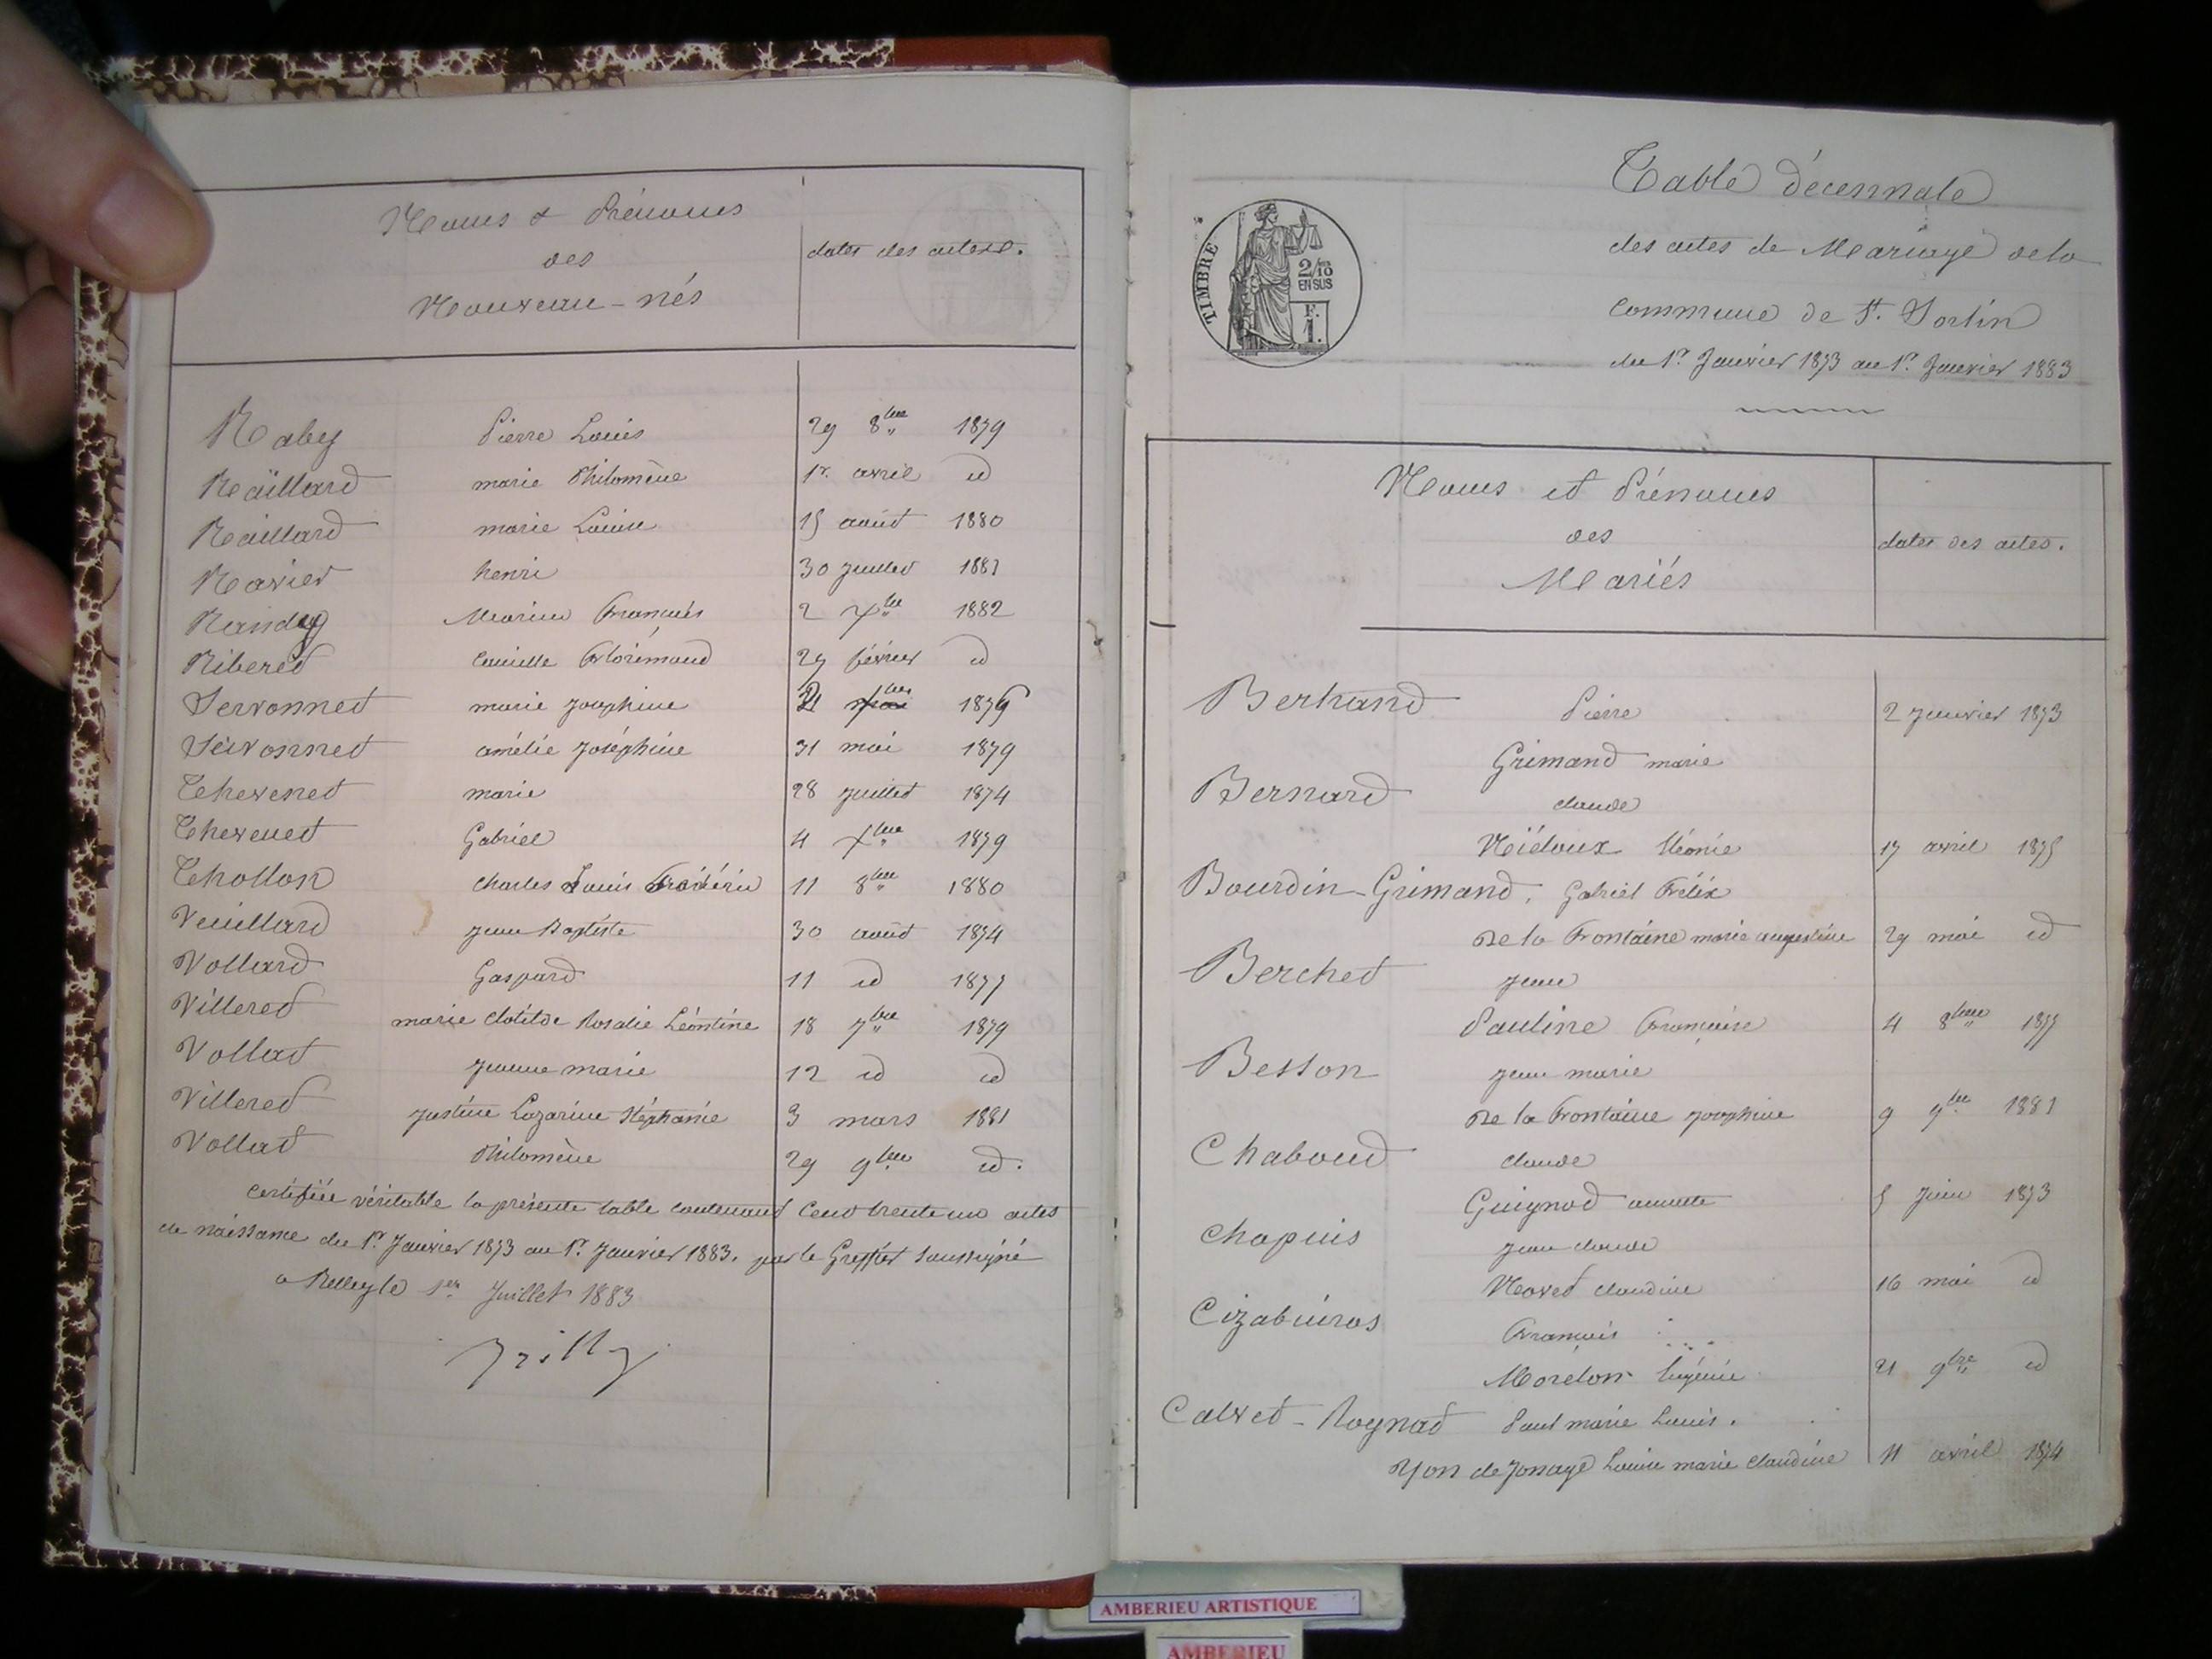 Noms & Prénoms
des
Nouveau-nés
dates des actes.
Rabey Pierre Louis 29 8bre 1879
Raillard marie Philomène 1r. avril id
Raillard marie Louise 15 août 1880
Ravier henri 30 juillet 1881
Randy Marius François 2 Xbre 1882
Riberet Camille Florimond 29 février id
Servonnet marie Joséphine 1876
Servonnet amélie Joséphine 31 mai 1879
Thevenet marie 28 juillet 1874
Thevenet Gabriel 4 Xbre 1879
Thollon Charles Louis Frédéric 11 8bre 1880
Veuillard Jean Baptiste 30 août 1874
Vollard Gaspard 11 id 1877
Villeret marie Clotilde Rosalie Léontine 18 7bre 1879
Vollat Jeanne marie 12 id id
Villeret Justine Lazarine Stéphanie 3 mars 1881
Vollat Philomène 29 9bre id.
Certifiée véritable la présente table contenant Cent trente un actes
de naissance du 1er. Janvier 1873 au 1er. Janvier 1883. par le Greffier soussigné
a Belley le 1er Juillet 1883
TIMBRE
2/10
EN SUS
F.
1.
Table décennale
des actes de Mariage de la
Commune de St. Sorlin
du 1er. Janvier 1873 au 1er. Janvier 1883
Noms et Prénoms
des
Mariés
dates des actes.
Bertrand Pierre 2 janvier 1873
Grimand marie
Bernard claude
Niédoux Léonie 17 avril 1875
Bourdin-Grimand, Gabriel Félix
De la Frontaine marie augustine 29 mai id
Berchet Jean
Pauline Françoise 4 8bre 1877
Besson Jean marie
De la Frontaine Joséphine 9 9bre 1881
Chaboud claude
Guignod annette 5 Juin 1873
Chapuis Jean claude
Novet claudine 16 mai id
Cizabuiros François
Moreton Eugénie 21 9bre id
Calvet-Rognat Paul marie Louis.
Yon de Jonage Louise marie Claudine 11 avril 1874
AMBERIEU ARTISTIQUE
AMBERIEU